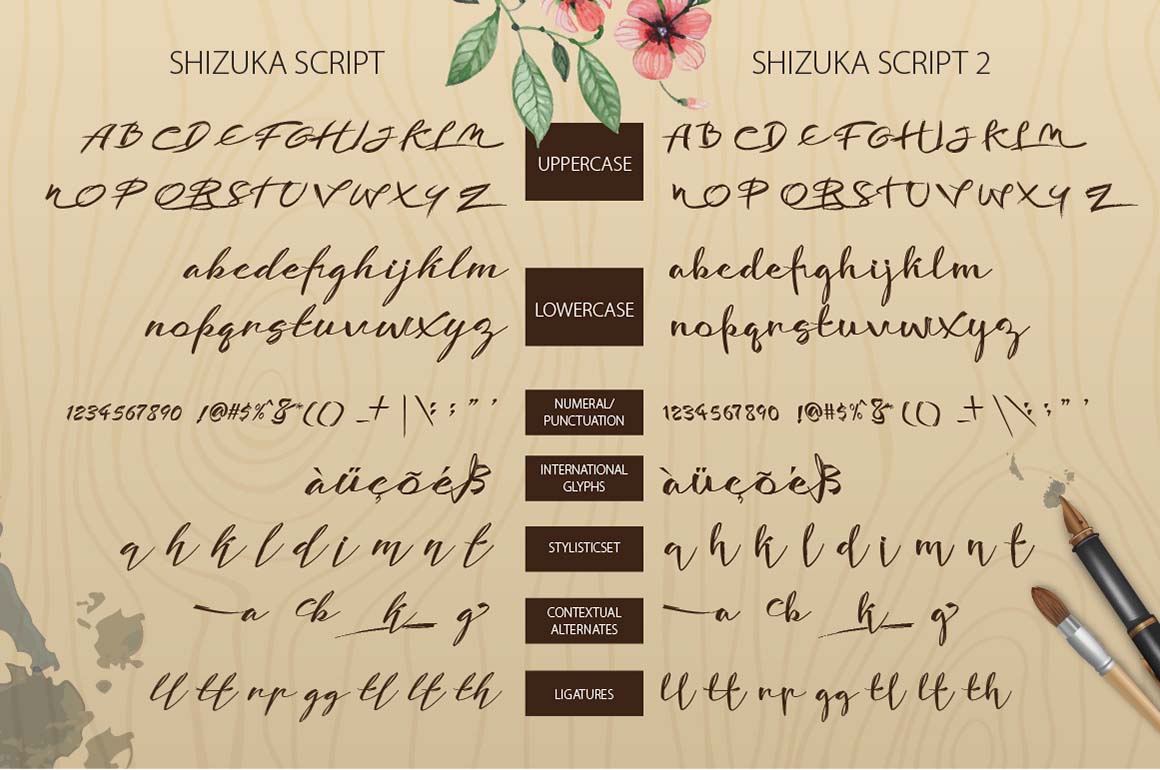 SHIZUKA SCRIPT
SHIZUKA SCRIPT 2
A B C D E F G H I J K L M
UPPERCASE
A B C D E F G H I J K L M
N O P Q R S T U V W X Y Z
N O P Q R S T U V W X Y Z
abcdefghijklm
LOWERCASE
abcdefghijklm
nopqrstuvwxyz
nopqrstuvwxyz
1234567890 !@#$%^&*() _+ |\: ; " '
NUMERAL/
PUNCTUATION
1234567890 !@#$%^&*() _+ |\: ; " '
àüçõéß
INTERNATIONAL
GLYPHS
àüçõéß
a h k l d i m n t
STYLISTICSET
a h k l d i m n t
a b k_ g
CONTEXTUAL
ALTERNATES
a b k_ g
ll tt rr gg tl lt th
LIGATURES
ll tt rr gg tl lt th